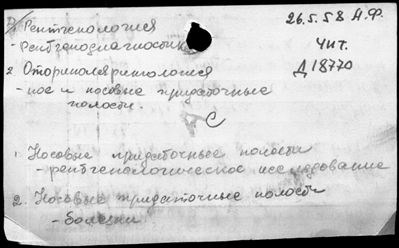 1. Рентгенология
26.5.58 Н.Ф.
- рентгенодиагностика
Чит.
2. Оториноларингология
Д18770
- нос и носовые придаточные
полости.
С
1. Носовые придаточные полости
- рентгенологическое исследование
2. Носовые придаточные полости
- болезни